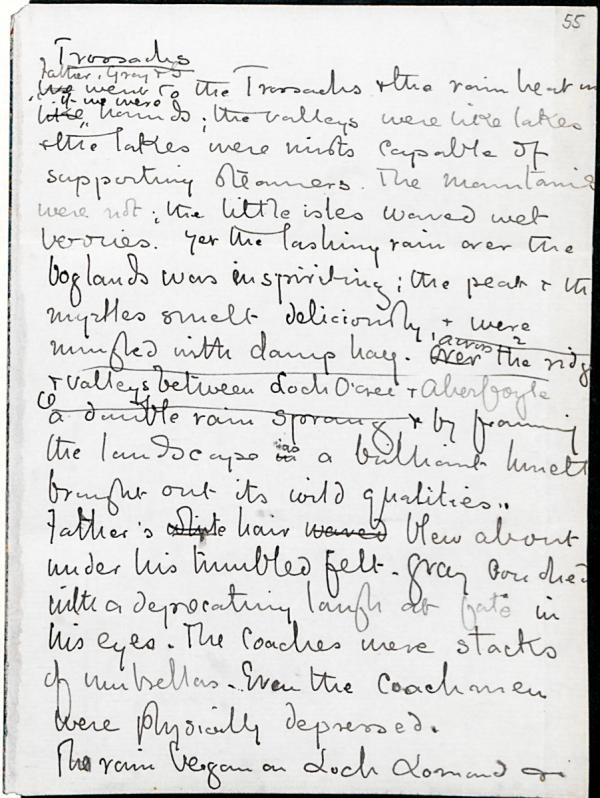 55
Trossachs
Father, Gray & I
We went to the Trossachs & the rain beat on
if we were
like hounds; the valleys were like lakes
& the lakes were mists capable of
supporting steamers. The mountains
were not; the little isles waved wet
berries. Yet the lashing rain over the
boglands was inspiriting; the peat & th
myrtles smelt deliciously, & were
mingled with damp hay. Over across the ridg
& valleys between Loch O'cree & Aberfoyle
a double rain sprang & by framing
the landscape in as a brilliant lunett
brought out its wild qualities..
Father's white hair waved blew about
under his tumbled felt. Gray
with a deprecating laugh at fate in
his eyes. The coaches were stacks
of umbrellas. Even the coachmen
were physically depressed.
The rain began on Loch Lomond